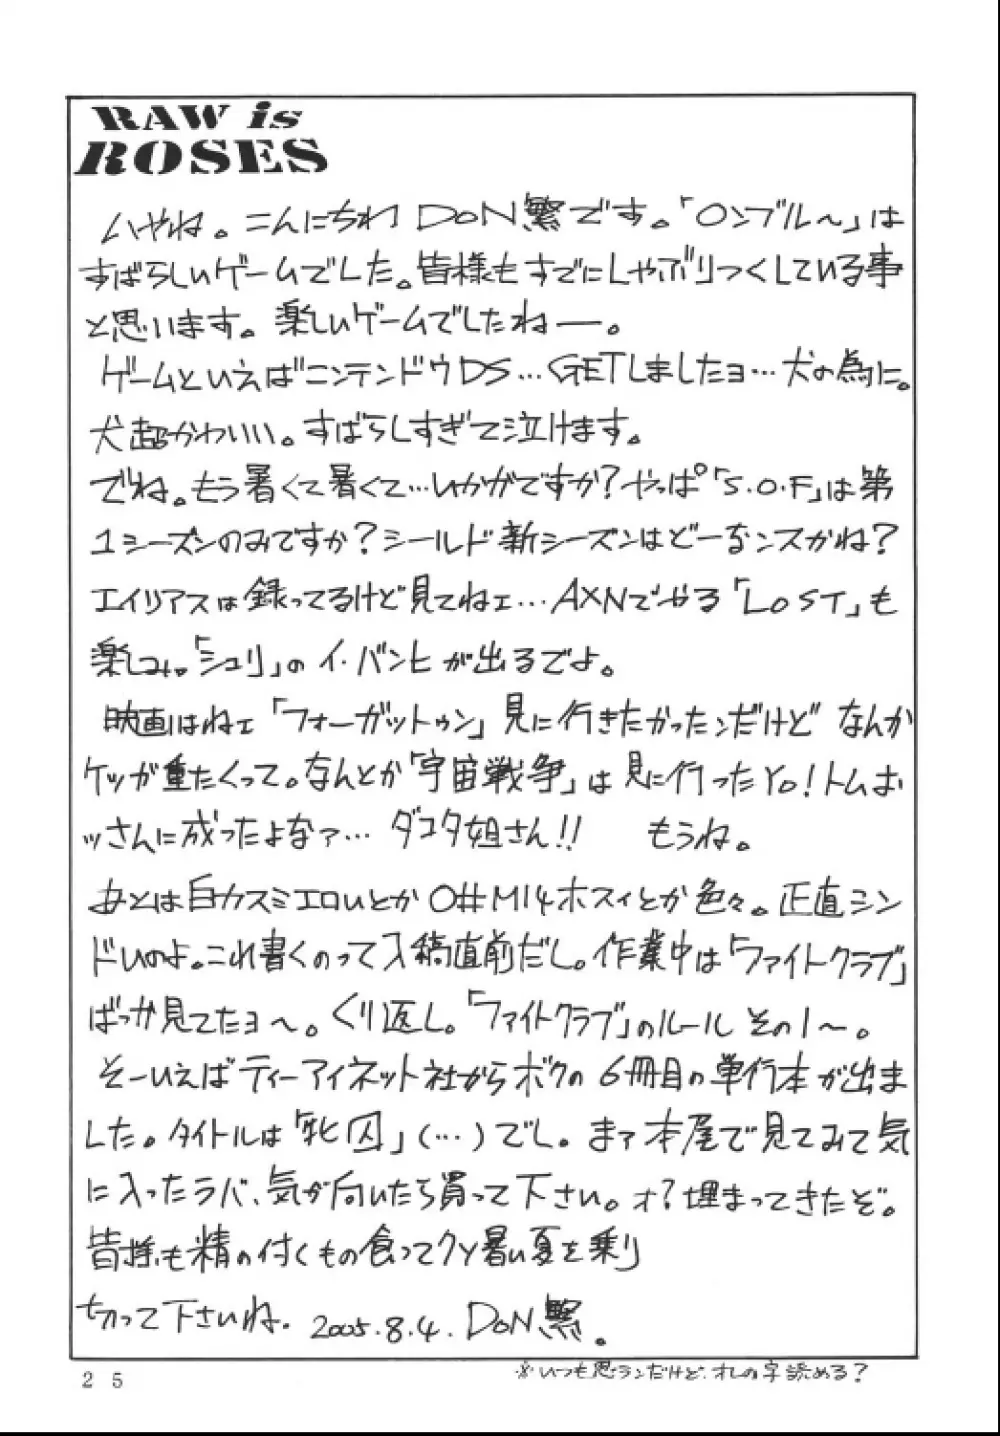 RAW is
ROSES
ハヤね。こんにちわ DoN繁です。「ロンブル〜」は
すばらしいゲームでした。皆様もすでにしゃぶりつくしている事
と思います。楽しいゲームでしたねー。
ゲームといえばニンテンドウDS…GETしましたョ…犬の為に。
犬超かわいい。すばらしすぎて泣けます。
でね。もう暑くて暑くて…いかがですか?やっぱ「S.O.F」は第
1シーズンのみですか?シールド新シーズンはどーなンスかね?
エイリアスは録ってるけど見てねェ…AXNでやる「LOST」も
楽しみ。「シュリ」のイ・バンヒが出るでよ。
映画はねェ「フォーガットゥン」見に行きたかったンだけど なんか
ケツが重たくって。なんとか「宇宙戦争」は見に行ったYo!トムお
ッさんに成ったよなァ… ダコタ姐さん!! もうね。
あとは白カスミエロいとか O#M14ホスィとか色々。正直シン
ドいのよ。これ書くのって入稿直前だし。作業中は「ファイトクラブ」
ばっか見てたョ〜。くり返し。「ファイトクラブ」のルール その1〜。
そーいえばティーアイネット社からボクの6冊目の単行本が出ま
した。タイトルは「牝囚」(…)でし。まァ本屋で見てみて気
に入ったラバ、気が向いたら買って下さい。オ?埋まってきたぞ。
皆様も精の付くもの食ってクソ暑い夏を乗り
切って下さいね. 2005.8.4. DoN繁。
※いつも思うンだけど、オレの字読める?
25